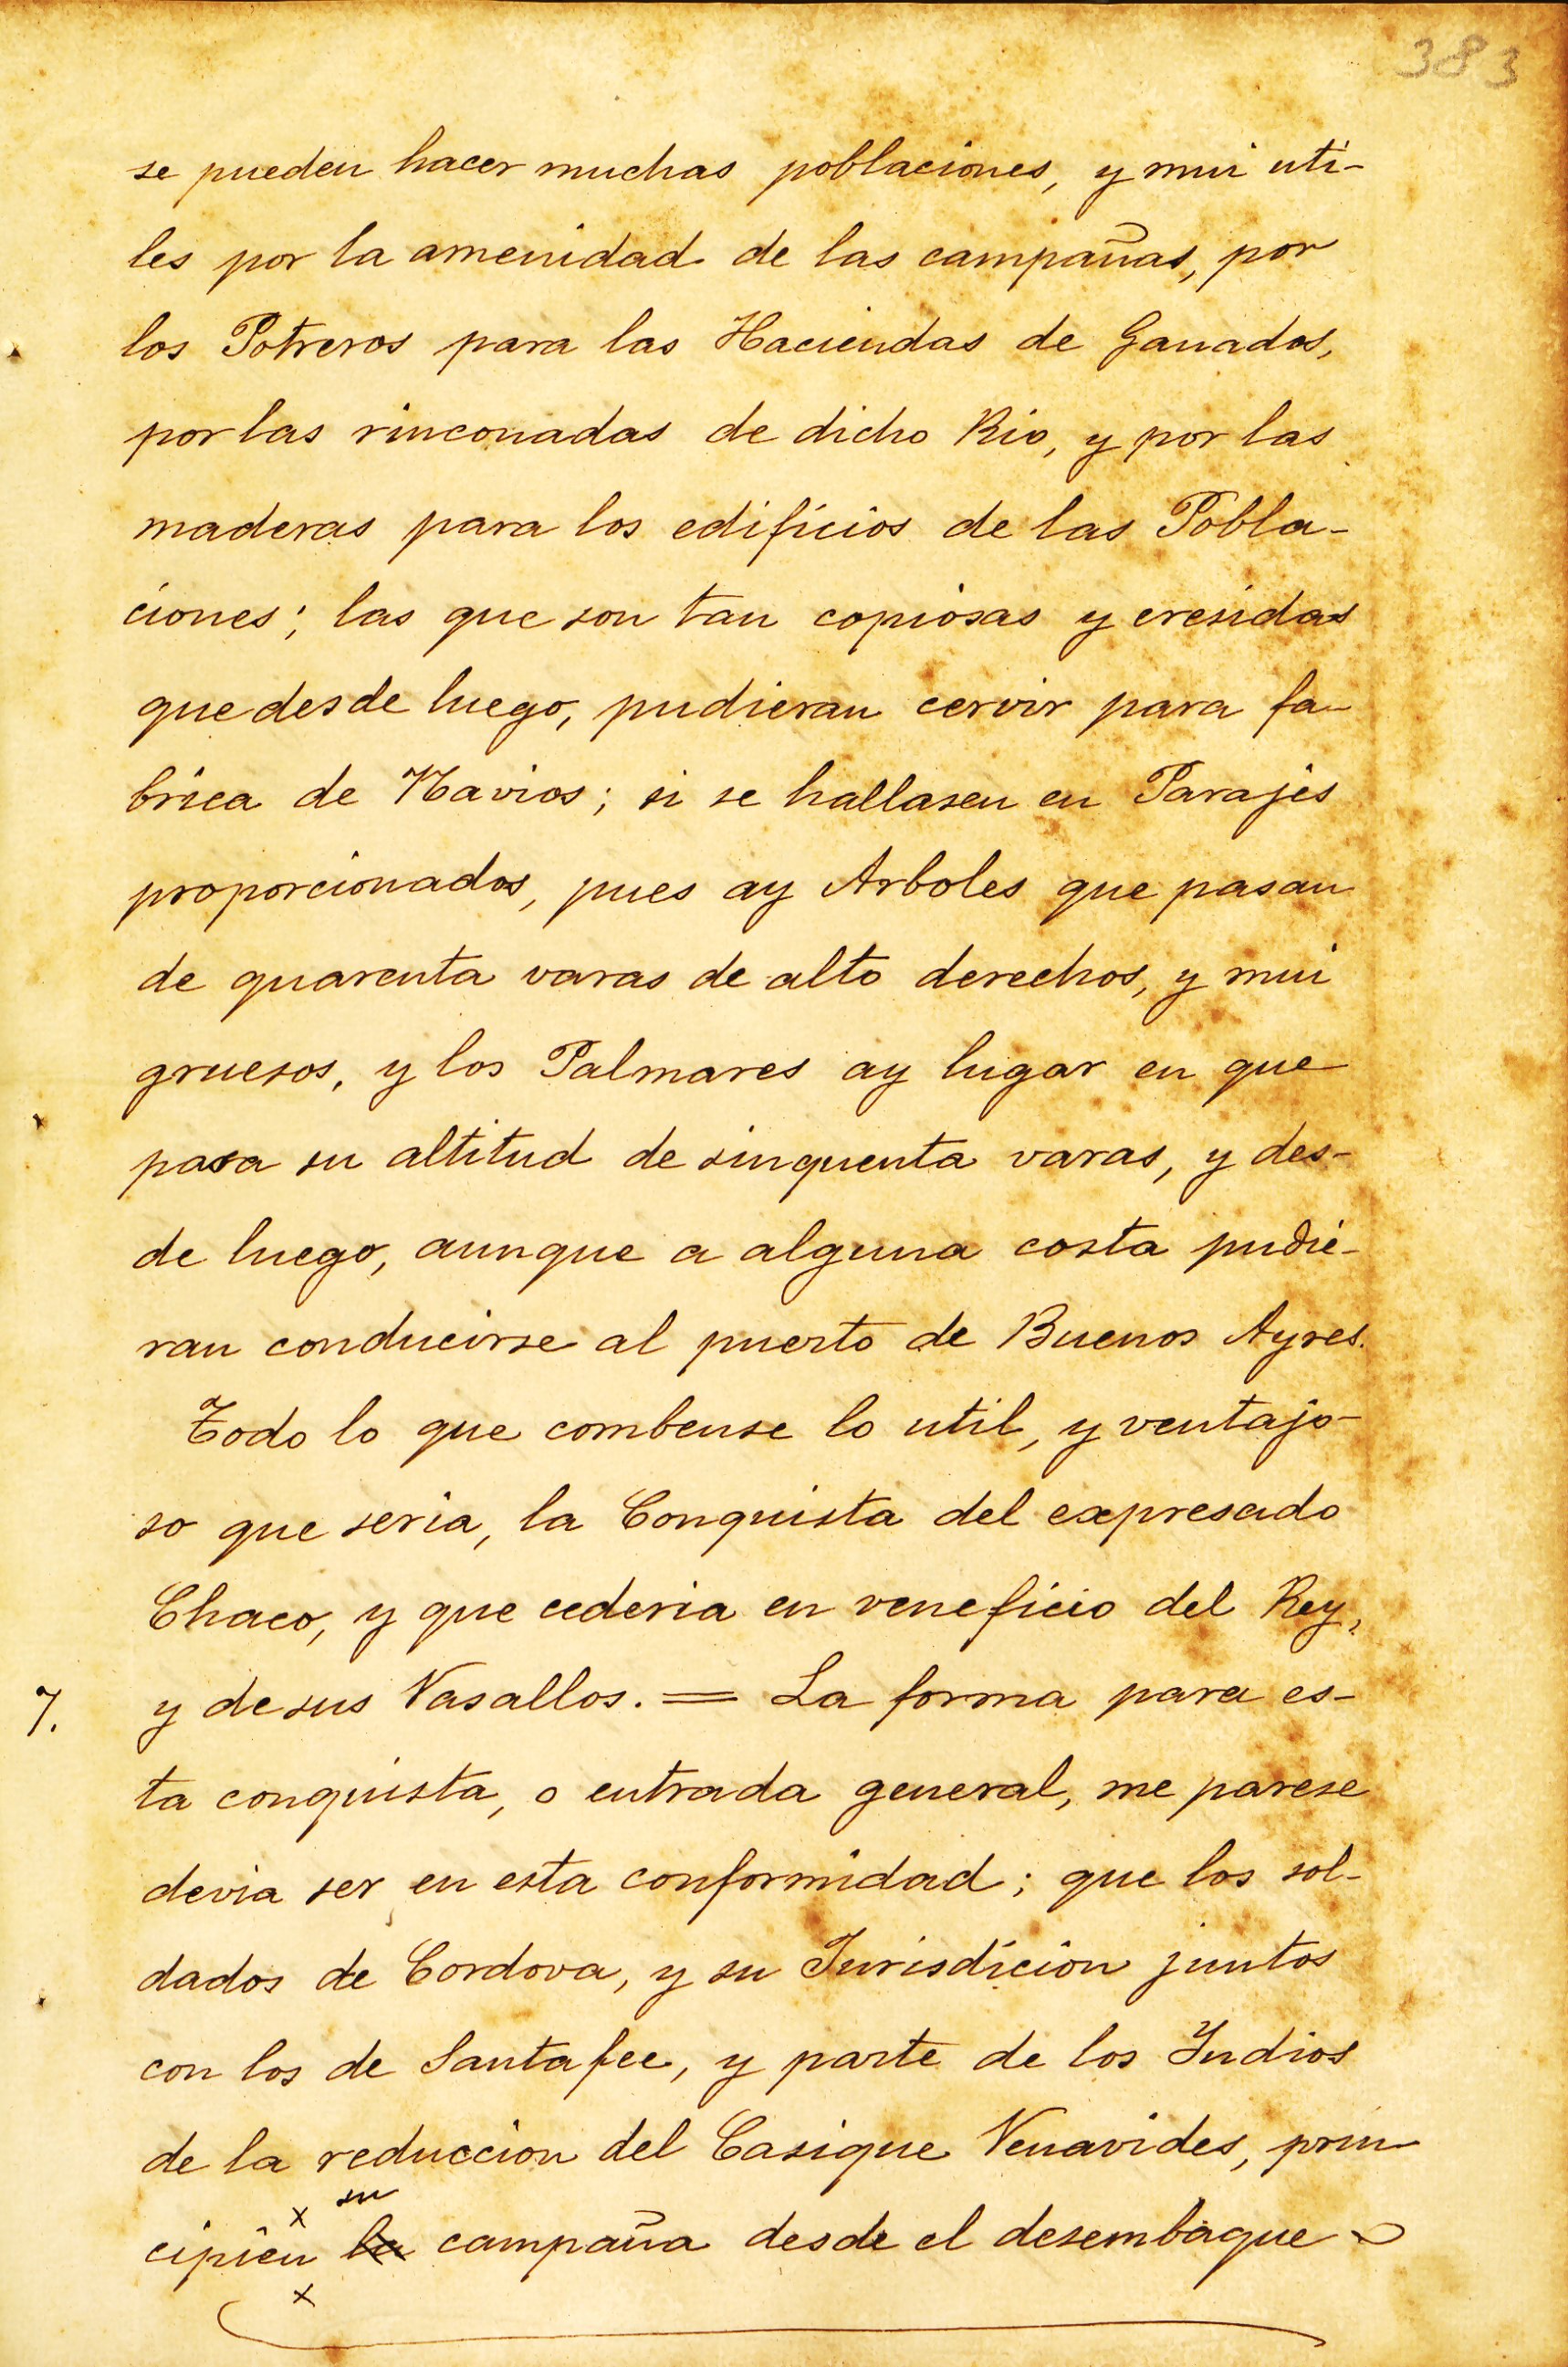 383
se pueden hacer muchas poblaciones, y mui uti-
les por la amenidad de las campañas, por
los Potreros para las Haciendas de Ganados,
por las rinconadas de dicho Rio, y por las
maderas para los edificios de las Pobla-
ciones; las que son tan copiosas y cresidas
que desde luego, pudieran cervir para fa-
brica de Navios; si se hallasen en Parajes
proporcionados, pues ay Arboles que pasan
de quarenta varas de alto derechos, y mui
gruesos, y los Palmares ay lugar en que
pasa su altitud de sinquenta varas, y des-
de luego, aunque a alguna costa pudie-
ran conducirse al puerto de Buenos Ayres.
Todo lo que combense lo util, y ventajo-
so que seria, la Conquista del expresado
Chaco, y que cederia en veneficio del Rey,
7. y de sus Vasallos. = La forma para es-
ta conquista, o entrada general, me parese
devia ser en esta conformidad; que los sol-
dados de Cordova, y su Jurisdicion juntos
con los de Santafee, y parte de los Yndios
de la reduccion del Casique Venavides, prin-
x su
cipien la campaña desde el desembaque
x